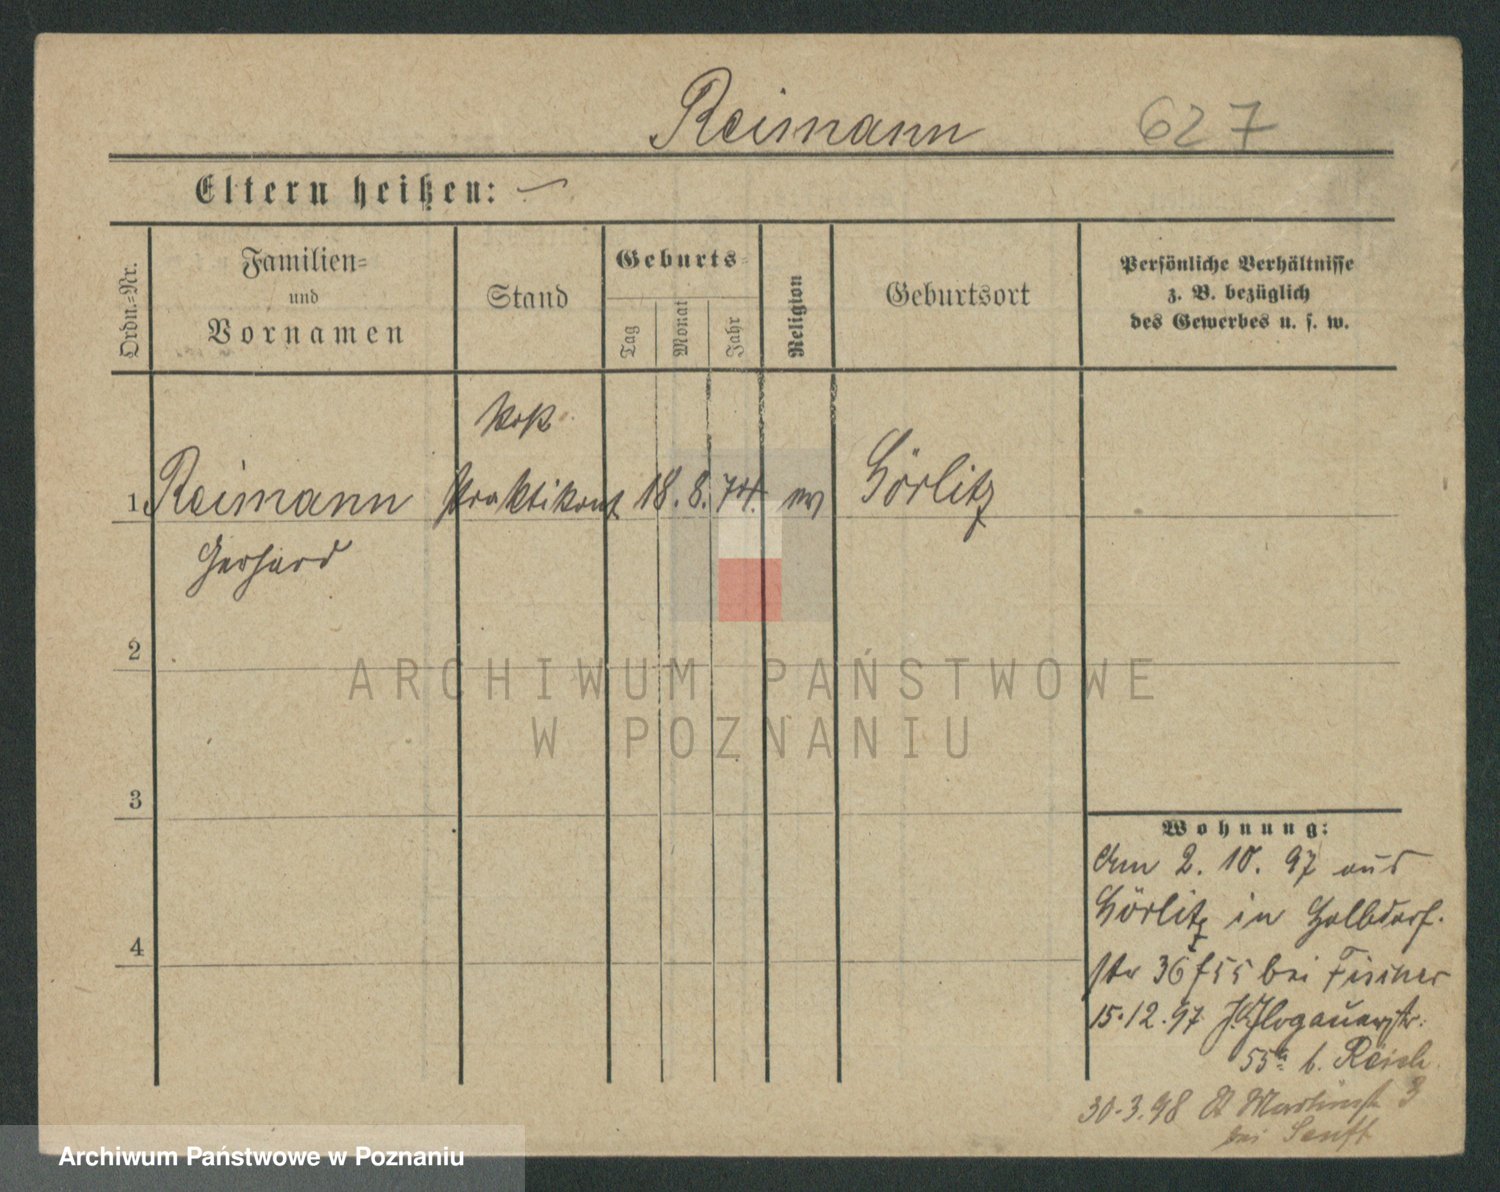 Reimann 627
Eltern heißen: —
Ordn.=Nr.
Familien=
und
Vornamen
Stand
Geburts=
Tag
Monat
Jahr
Religion
Geburtsort
Persönliche Verhältnisse
z. B. bezüglich
des Gewerbes u. s. w.
Post
1 Reimann Praktikant 18. 8. 74. ev Görlitz
Gerhard
2
3
4
Wohnung:
Am 2. 10. 97 aus
Görlitz in Halbdorf-
str 36 bei Fischer
15.12.97 Glogauerstr.
55a b. Reich
30.3.98 St Martinstr 3
bei Senft
ARCHIWUM PAŃSTWOWE
W POZNANIU
Archiwum Państwowe w Poznaniu